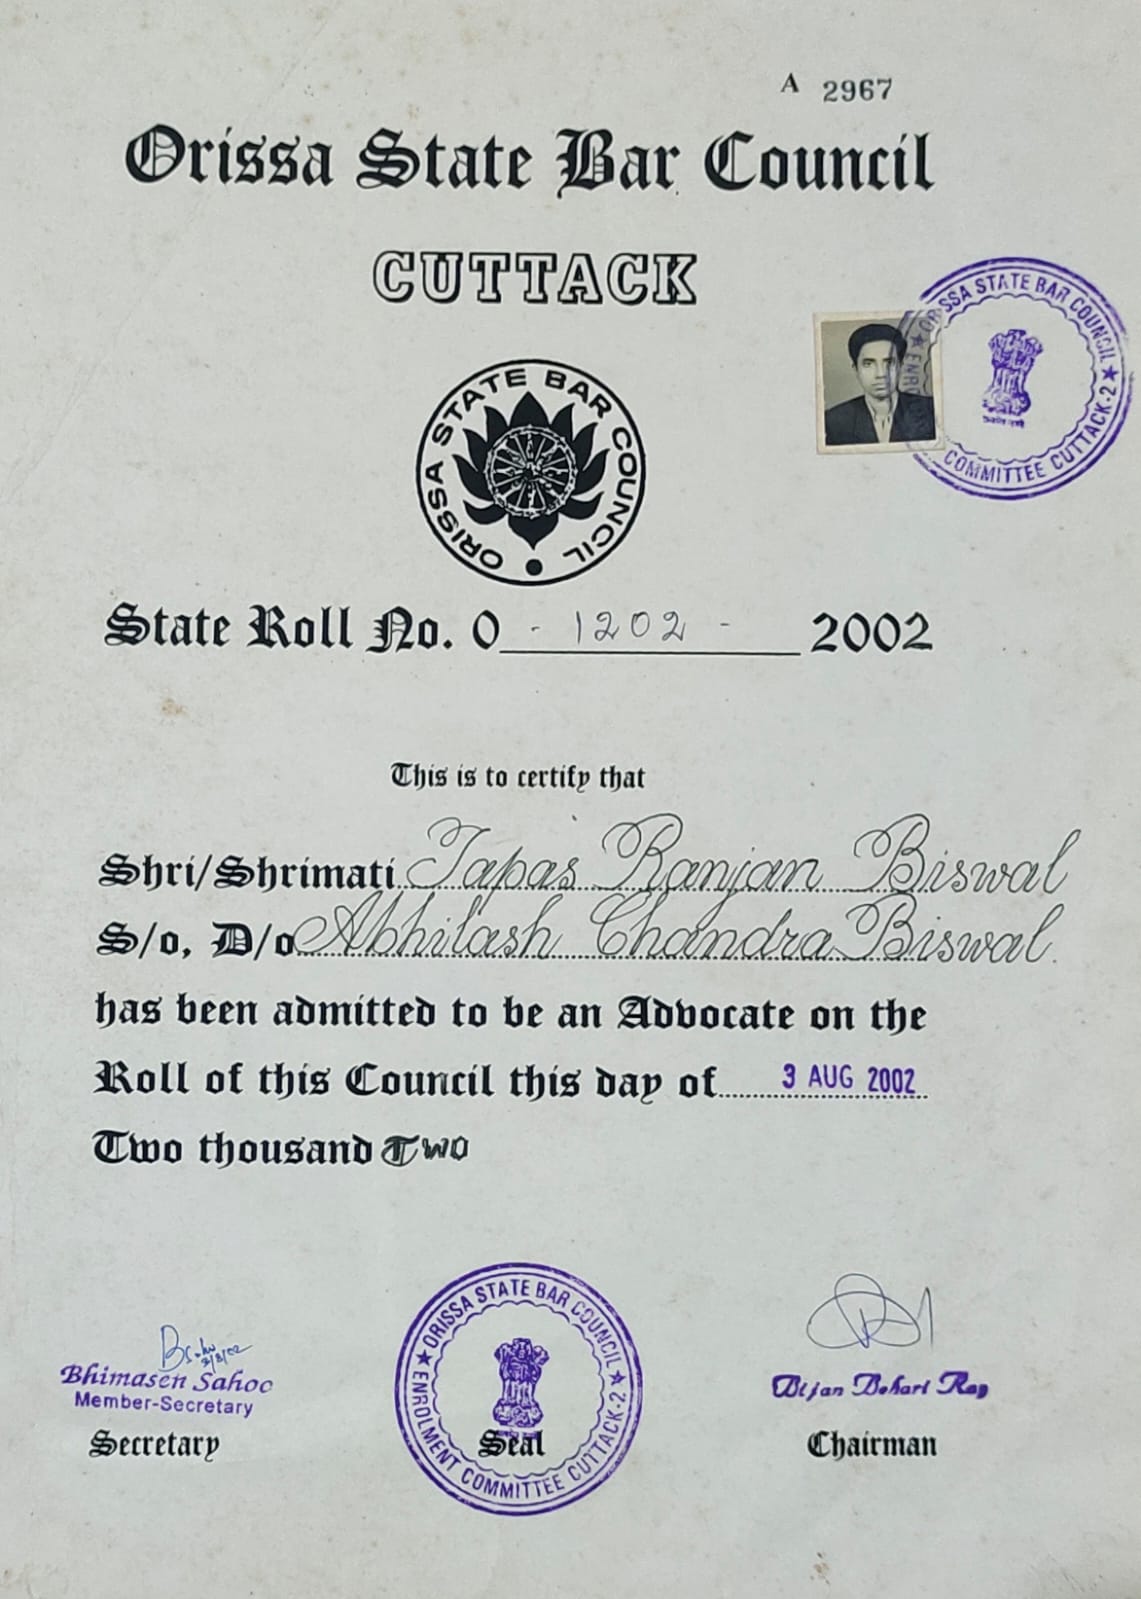 A 2967
Orissa State Bar Council
CUTTACK
ORISSA STATE BAR COUNCIL
ENROLMENT COMMITTEE CUTTACK-2
ORISSA STATE BAR COUNCIL
State Roll No. O - 1202 - 2002
This is to certify that
Shri/Shrimati Tapas Ranjan Biswal
S/o, D/o Abhilash Chandra Biswal.
has been admitted to be an Advocate on the
Roll of this Council this day of 3 AUG 2002
Two thousand Two
ORISSA STATE BAR COUNCIL
ENROLMENT COMMITTEE CUTTACK-2
3/8/02
Bhimasen Sahoo
Member-Secretary
Secretary
Seal
Bijan Behari Ray
Chairman